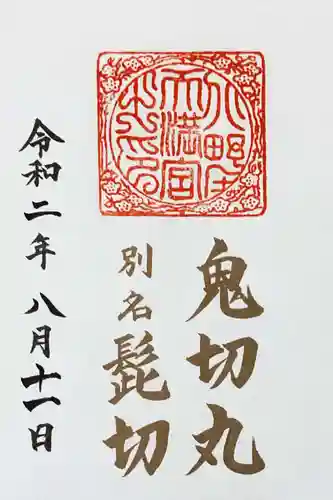 北野天満宮之印
鬼切丸
別名
髭切
令和二年八月十一日